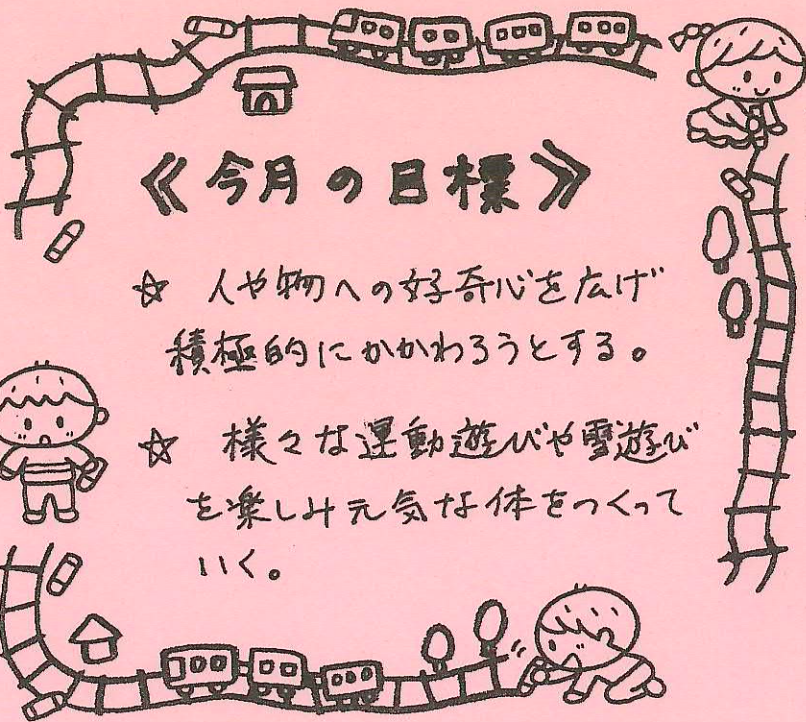 《今月の目標》
☆ 人や物への好奇心を広げ
積極的にかかわろうとする。
☆ 様々な運動遊びや雪遊び
を楽しみ元気な体をつくって
いく。